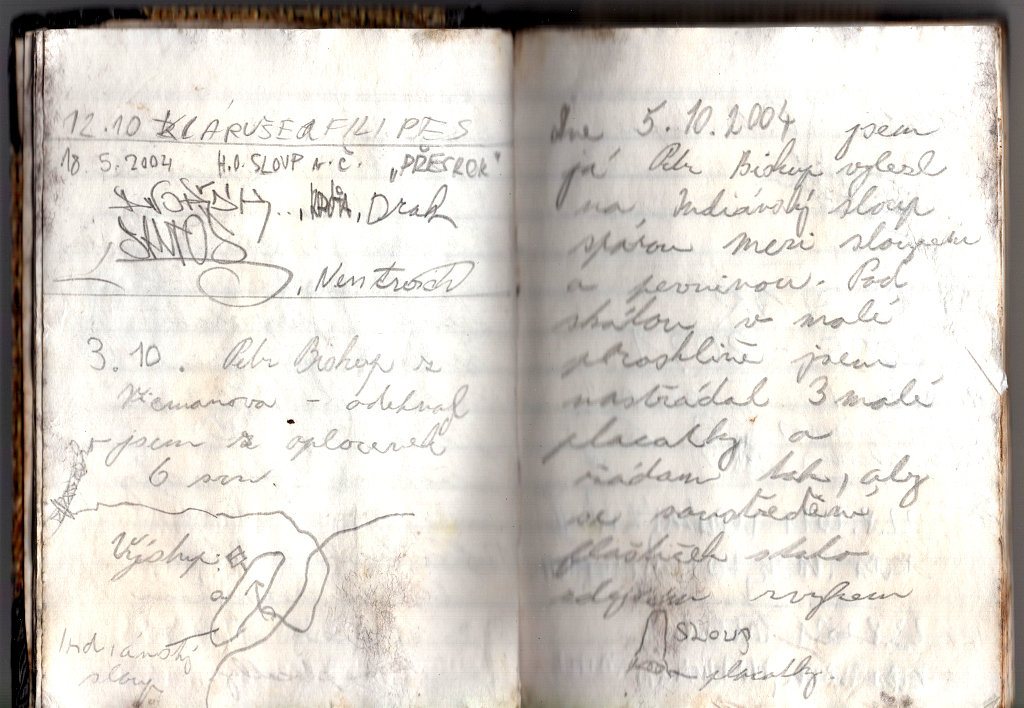 12.10 KLÁRUŠE A FILI PES
18.5.2004 H.O. SLOUP n.č. „PŘESKOK"
, Drak
3.10. Petr Biskup z
Křemanova – odehnal
jsem z oplocenek
6 srn.
Výstup:
Indiánský
sloup
dne 5.10.2004 jsem
já Petr Biskup vylezl
na Indiánský sloup
spárou mezi sloupem
a pevninou. Pod
skálou v malé
prohlině jsem
nastřádal 3 malé
placatky a
žádám tak, aby
se soustředění
stalo
zdejším zvykem
SLOUP
placatky.